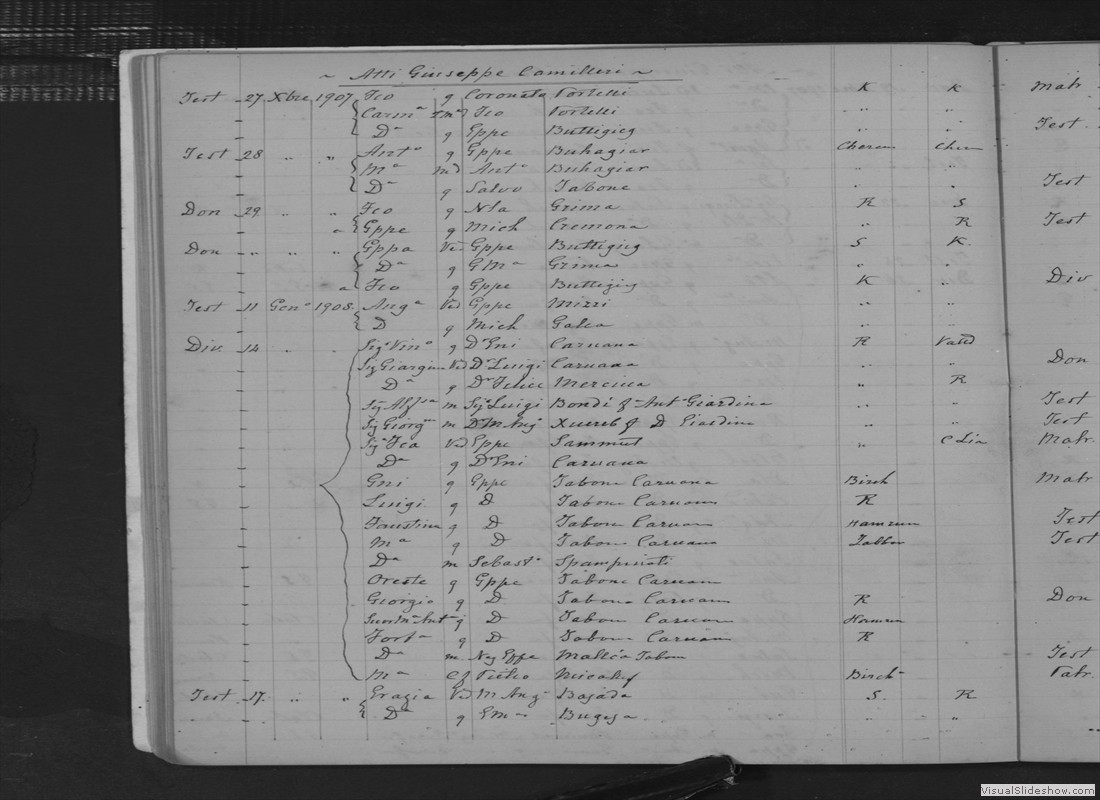 ~ Atti Giuseppe Camilleri ~
Test 27 Xbre 1907 Fco g Coronata Portelli K K
Carmª Fco Portelli " "
Dª g Gppe Buttigieg " "
Test 28 " " Antª g Gppe Buhagiar
Mª md Antº Buhagiar " "
Dª g Salvo Tabone " "
Don 29 " " Fco g Nla Grima K S
a Gppe g Mich Cremona " K
Don " " " Gppa Va Gppe Buttigieg S K
Dª g G Mª Grima " "
a Fco g Gppe Buttigieg K "
Test 11 Genº 1908 Angª Va Gppe Mizzi " "
D g Mich Galea " "
Div. 14 " " Sigr Vinº g Dr Gni Caruana K
Va Dr Luigi Caruana " "
Dª g Dr Felice Mercieca " K
m Sigr Luigi Bondi f Antº Giardina " "
m Dr M Ang Xuereb f D Giardina " "
Siga Fca Va Gppe Sammut " C Lia
Dª g Dr Gni Caruana
Gni g Gppe Tabone Caruana Birch
Luigi g D Tabone Caruana K
Faustina g D Tabone Caruana Hamrun
Mª g D Tabone Caruana
Dª m Sebastº Spampinati
Oreste g Gppe Tabone Caruana
Giorgio g D Tabone Caruana K
g D Tabone Caruana Hamrun
Fortª g D Tabone Caruana K
Dª m Gppe Mallia Tabone
Mª Pietro Micallef Birch
Test 17 " " Grazia Va M Ang Bajada S K
Dª g Emª Bugeja " "
Matr
Test
Test
Test
Div
Don
Test
Test
Matr
Matr
Test
Test
Don
Test
Matr
VisualSlideshow.com